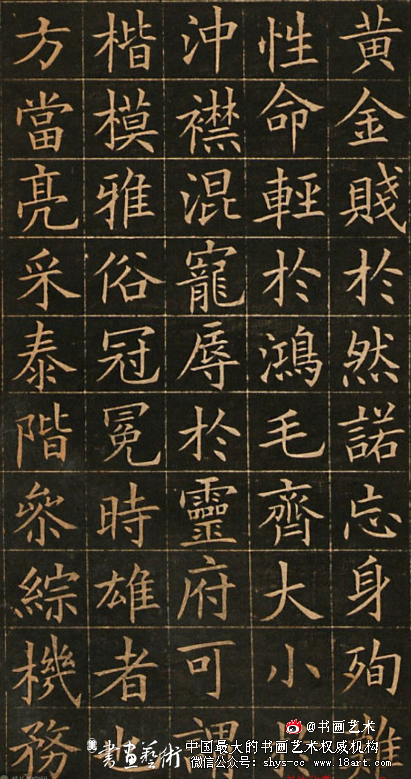 黄金賤於然諾忘身殉
性命輕於鴻毛齊大小
沖襟混寵辱於靈府可
楷模雅俗冠冕時雄者也
方當亮采泰階參綜機務
@书画艺术
書畫藝術
中国最大的书画艺术权威机构
微信公众号：shys-cc www.18art.com